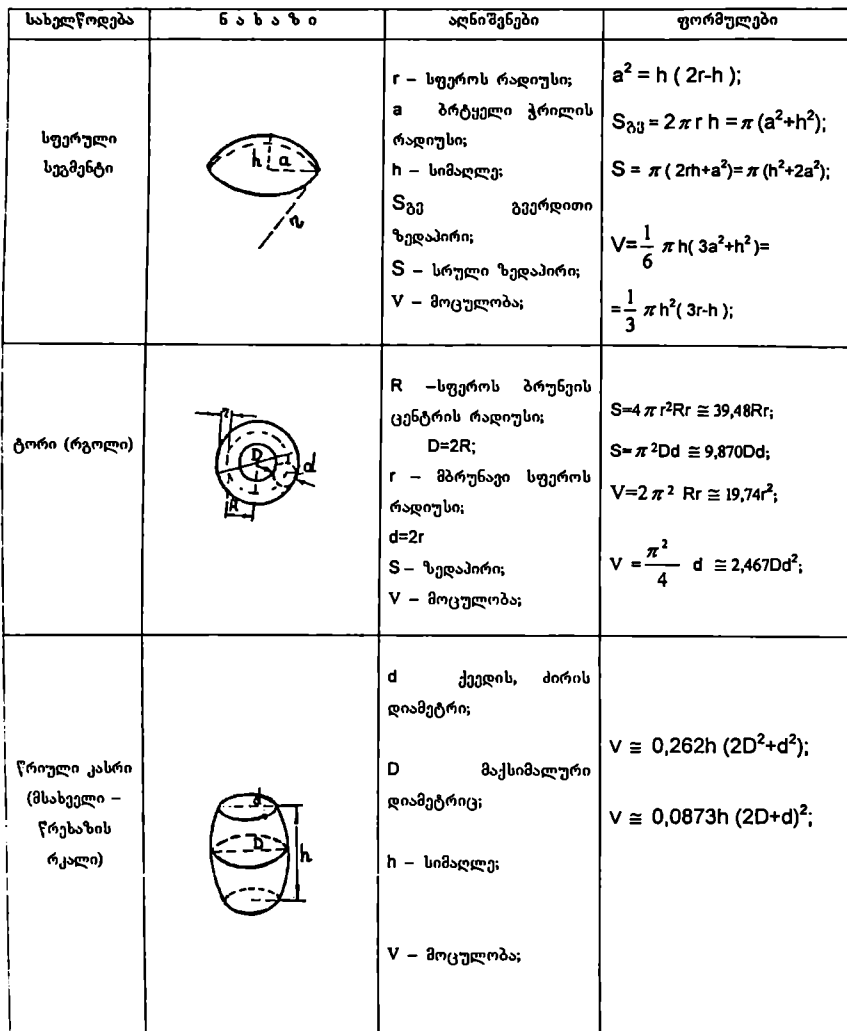 სახელწოდება
ნ ა ხ ა ზ ი
აღნიშვნები
ფორმულები
სფერული
სეგმენტი
h a
r
r – სფეროს რადიუსი;
a ბრტყელი ჭრილის
რადიუსი;
h – სიმაღლე;
Sგვ გვერდითი
ზედაპირი;
S – სრული ზედაპირი;
V – მოცულობა;
a² = h ( 2r-h );
Sგვ = 2 π r h = π (a²+h²);
S = π ( 2rh+a²)= π (h²+2a²);
V=1/6 π h( 3a²+h² )=
=1/3 π h²( 3r-h );
ტორი (რგოლი)
r
D
d
R
R –სფეროს ბრუნვის
ცენტრის რადიუსი;
D=2R;
r – მბრუნავი სფეროს
რადიუსი;
d=2r
S – ზედაპირი;
V – მოცულობა;
S=4 π r²Rr ≅ 39,48Rr;
S= π ²Dd ≅ 9,870Dd;
V=2 π ² Rr ≅ 19,74r²;
V = π²/4 d ≅ 2,467Dd²;
წრიული კასრი
(მსახველი –
წრეხაზის
რკალი)
d
D
h
d ქვედის, ძირის
დიამეტრი;
D მაქსიმალური
დიამეტრიც;
h – სიმაღლე;
V – მოცულობა;
V ≅ 0,262h (2D²+d²);
V ≅ 0,0873h (2D+d)²;